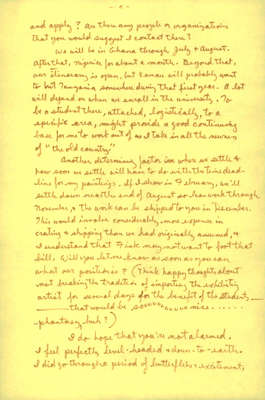 and apply? Are there any people or organizations
that you would suggest I contact there?
We will be in Ghana through July & August.
After that, Nigeria for about a month. Beyond that,
our itinerary is open, but I will probably want
to hit Tanzania somewhere during that first year. A lot
will depend on when we enroll in the university. To
be a student there, attached, logistically, to a
specific area, might provide a good continuing
base for me to work out of as I take in all the
of "the old country"
Another determining factor in when we settle &
how soon we settle will have to do with the time dead-
line for my paintings. If I show in February, we'll
settle down near the end of August so I can work through
November, & the work can be shipped to you in December.
This would involve considerably more expense in
crating & shipping than we had originally assumed, &
I understand that Fisk may not want to foot that
bill. Will you let me know as soon as you can
what our position is? (Think happy thoughts about
not breaking the tradition of importing the exhibiting
artist for several days for the benefit of the students,
that would be soooooooo nice.......
phantasy, huh?)
I do hope that you're not alarmed.
I feel perfectly level-headed & down-to-earth.
I did go through a period of butterflies & excitement,